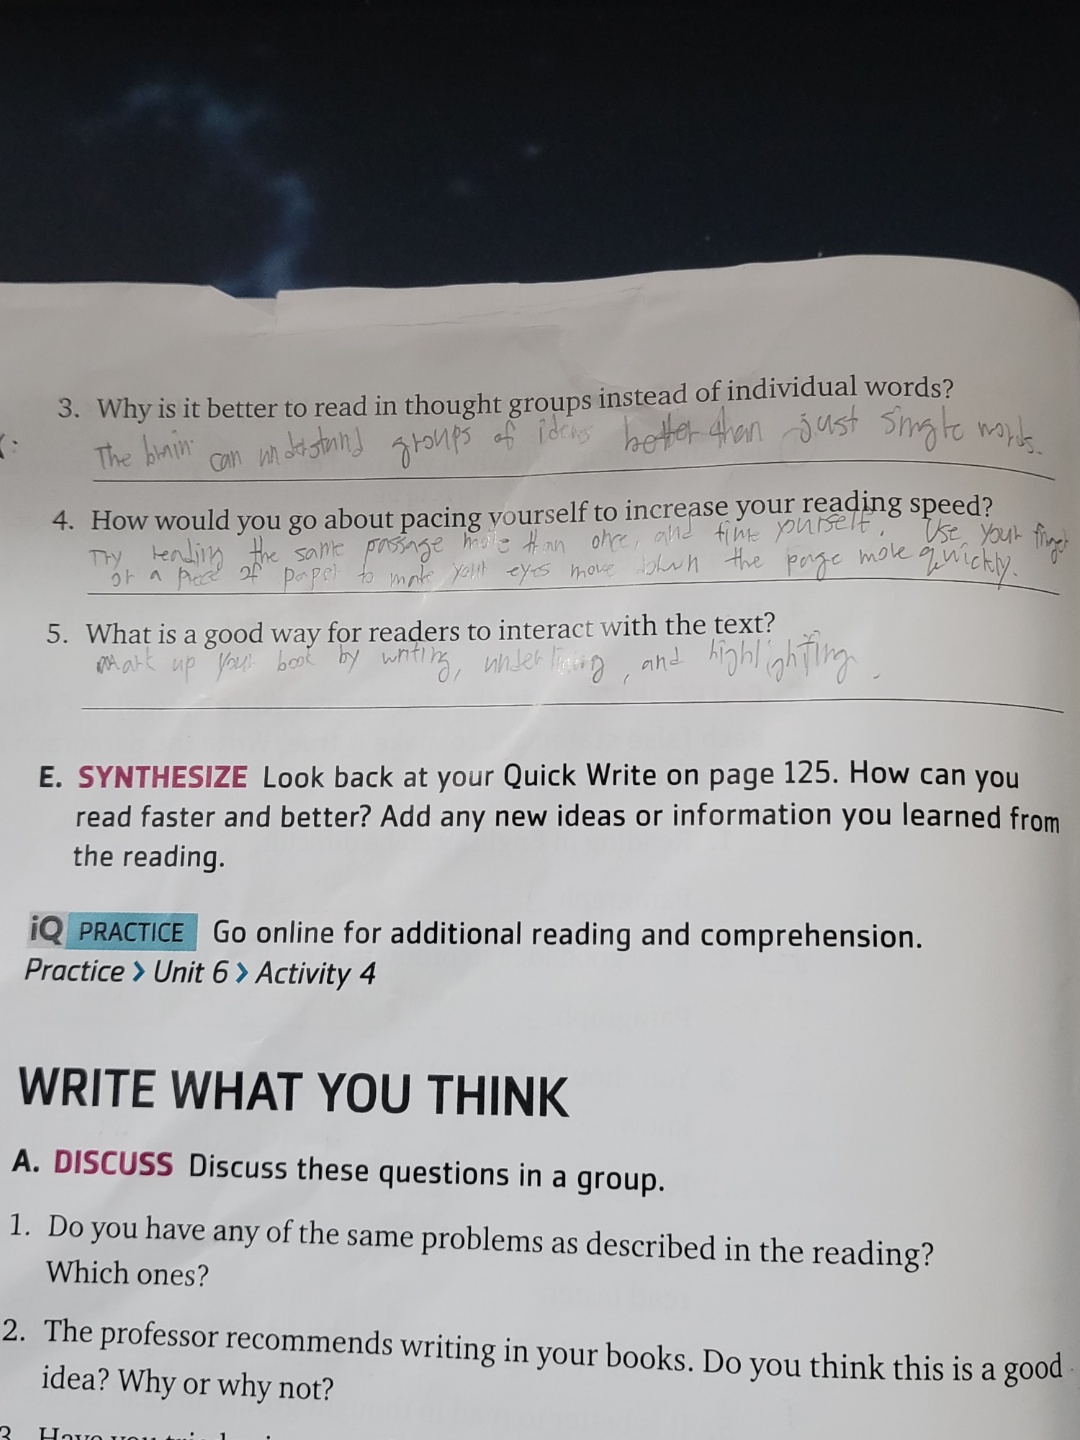 3. Why is it better to read in thought groups instead of individual words?
The brain can understand groups of ideas better than just single words.
4. How would you go about pacing yourself to increase your reading speed?
Try reading the same passage more than once, and time yourself. Use your finger
or a piece of paper to make your eyes move down the page more quickly.
5. What is a good way for readers to interact with the text?
mark up your book by writing, underlining, and highlighting.
E. SYNTHESIZE Look back at your Quick Write on page 125. How can you
read faster and better? Add any new ideas or information you learned from
the reading.
iQ PRACTICE Go online for additional reading and comprehension.
Practice > Unit 6 > Activity 4
WRITE WHAT YOU THINK
A. DISCUSS Discuss these questions in a group.
1. Do you have any of the same problems as described in the reading?
Which ones?
2. The professor recommends writing in your books. Do you think this is a good
idea? Why or why not?
3. Have you